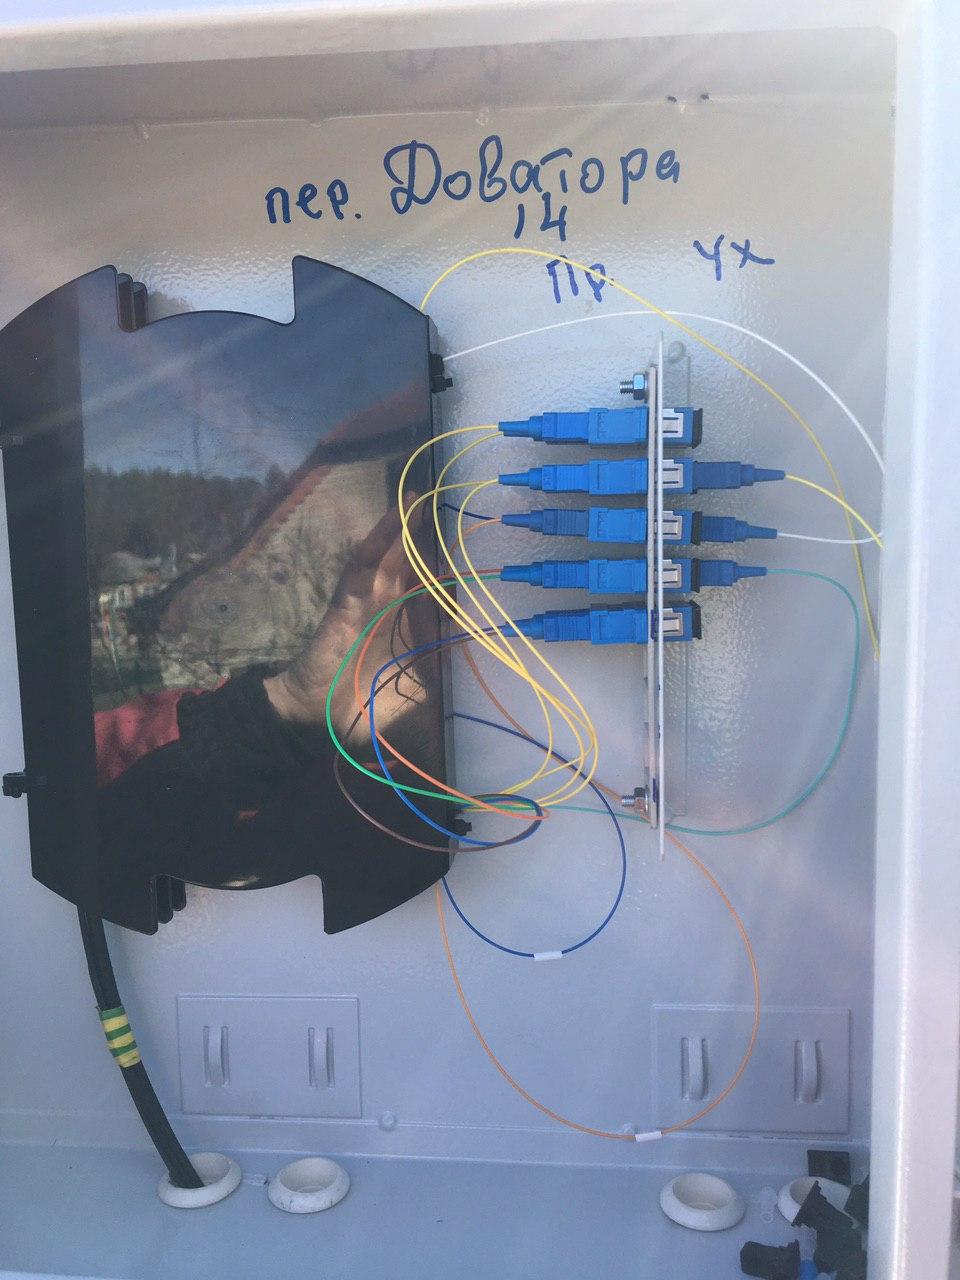 пер. Доватора
14
Пр. Ух